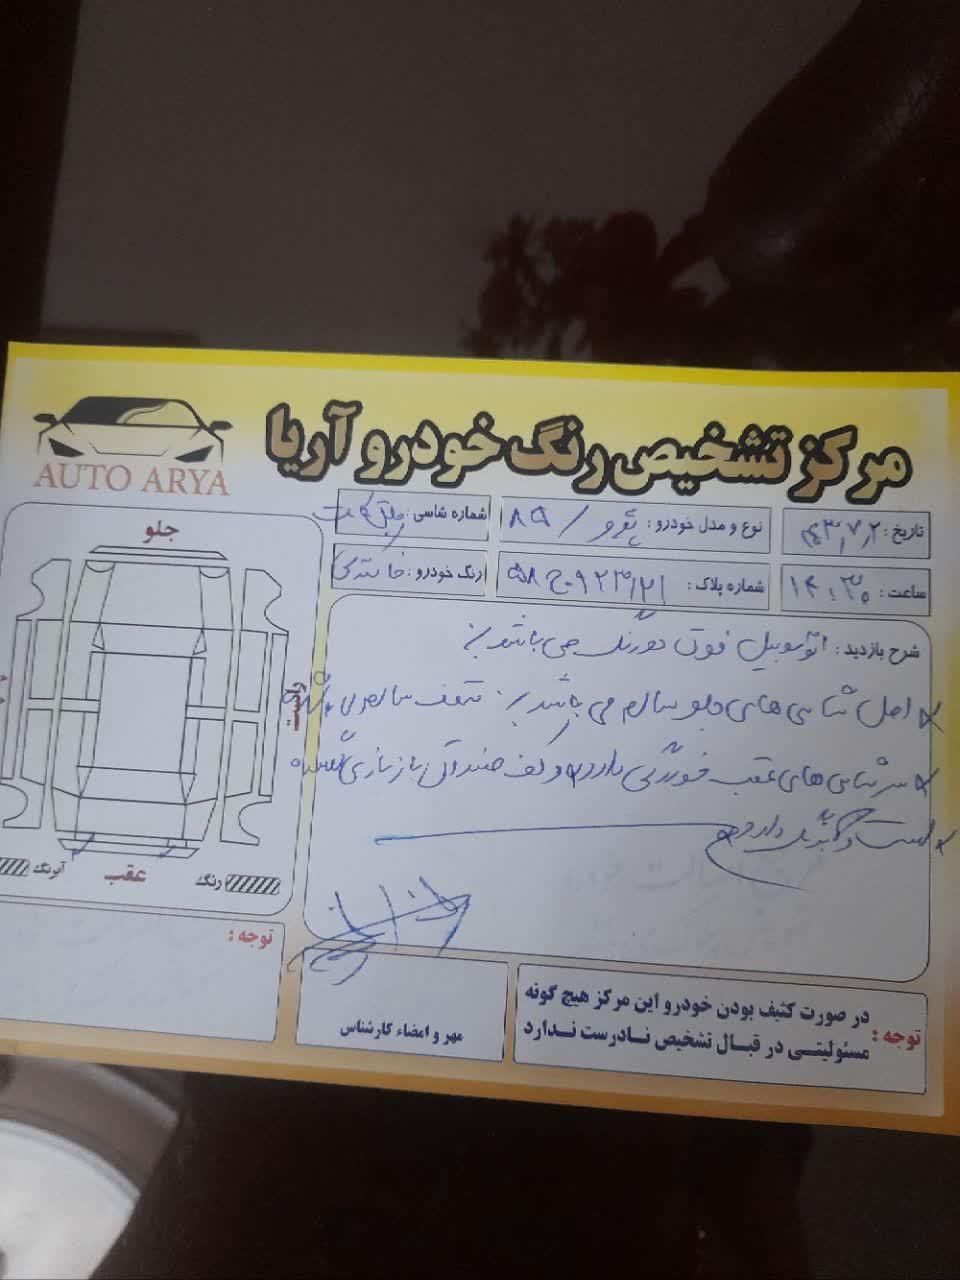 مرکز تشخیص رنگ خودرو آریا
AUTO ARYA
تاریخ :
نوع و مدل خودرو : پژو / ۸۵
شماره شاسی : طبق کارت
ساعت : ۱۴:۳۰
شماره پلاک :
رنگ خودرو : خاکستری
شرح بازدید : اتومبیل فوق دور رنگ می باشد
* اصل شاسی های جلو سالم می باشد سقف سالم
* سر شاسی های عقب خوردگی دارد و کف صندوق بازسازی شده
* است و
جلو
راست
عقب
رنگ
آبرنگ
توجه :
مهر و امضاء کارشناس
توجه : در صورت کثیف بودن خودرو این مرکز هیچ گونه
مسئولیتی در قبال تشخیص نادرست ندارد